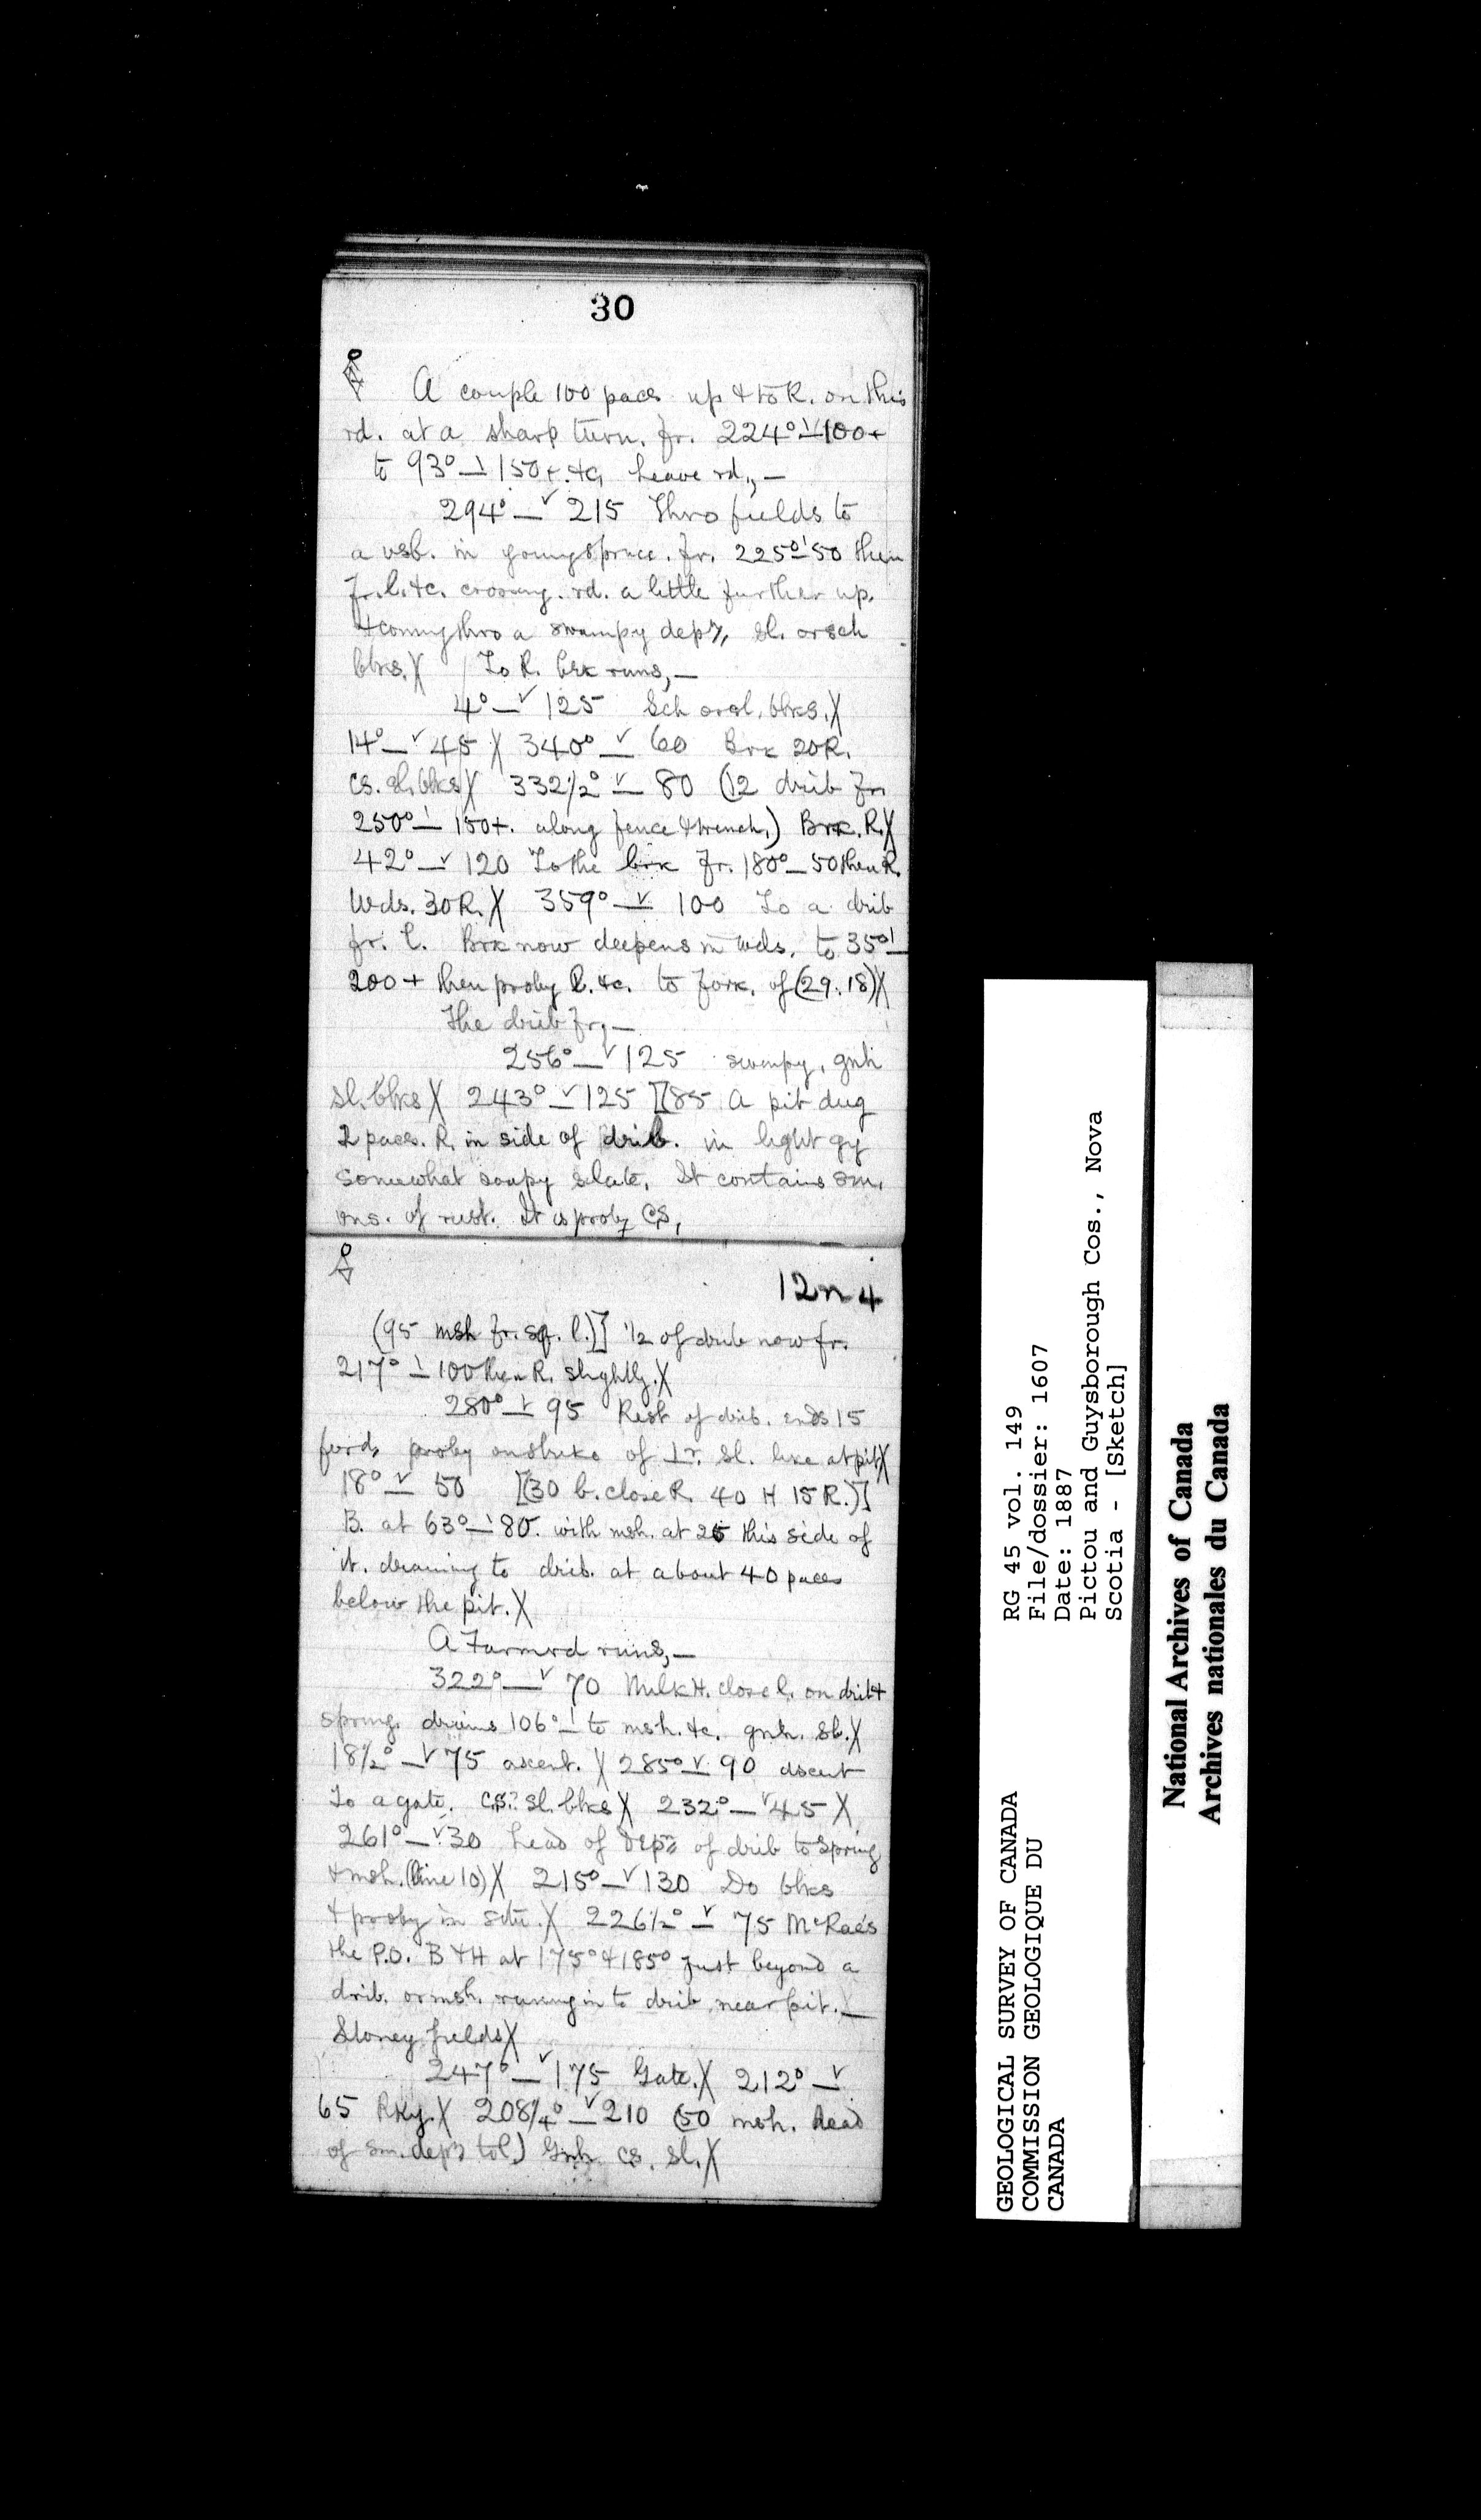 30
A couple 100 paces up & to R. on this
rd. at a sharp turn. fr. 224° — 100+
to 93° — 150+. &c, Leave rd., —
294° — 215 Thro fields to
a vsb. in young spruce. fr. 225° — 50 then
fr. l. &c. crossing. rd. a little further up.
& coming thro a swampy depn, sl. or sch
blks. X To R. brk runs, —
4° — 125 Sch or sl. blks. X
14° — 45 X 340° — 60 Brk 20 R.
cs. sl. blks X 332½° — 80 (12 drib fr.
250° — 150+. along fence & trench.) Brk. R. X
42° — 120 To the brk fr. 180° — 50 then R.
Wds. 30 R. X 359° — 100 To a drib
fr. l. Brk now deepens in wds. to 35° —
200+ then proby l. &c. to fork. of (29.18) X
The drib fr, —
256° — 125 swampy, gnh
sl. blks X 243° — 125 [(85 A pit dug
2 paces. R. in side of drib. in light gy
somewhat soapy slate, It contains sm.
vns. of rust. It is proby CS,
12n4
(95 msh fr. sq. l.)] ½ of drib now fr.
217° — 100 then R. slightly. X
280° — 95 Rest of drib. ends 15
furd, proby on strike of sl. like at pit X
18° — 50 [(30 b. close R. 40 H 15 R.)]
B. at 63° — 80. with msh. at 25 this side of
it. draining to drib. at about 40 paces
below the pit. X
A Farm rd runs, —
322° — 70 Milk H. close l. on drib &
spring. drains 106° — to msh. &c. gnh. sl. X
18½° — 75 ascent. X 285° — 90 dscent
To a gate. C.S.? sl. blks X 232° — 45 X
261° — 30 head of depn of drib to spring
& msh. (line 10) X 215° — 130 Do blks
& proby in situ. X 226½° — 75 McRae's
the P.O. B & H at 175° & 185° just beyond a
drib. or msh. running in to drib near pit. —
Stoney fields X
247° — 175 Gate. X 212° —
65 Rky. X 208¼° — 210 (50 msh. head
of sm. depn to l.) Gnh. cs. sl. X
GEOLOGICAL SURVEY OF CANADA
COMMISSION GEOLOGIQUE DU
CANADA
RG 45 vol. 149
File/dossier: 1607
Date: 1887
Pictou and Guysborough Cos., Nova
Scotia - [Sketch]
National Archives of Canada
Archives nationales du Canada